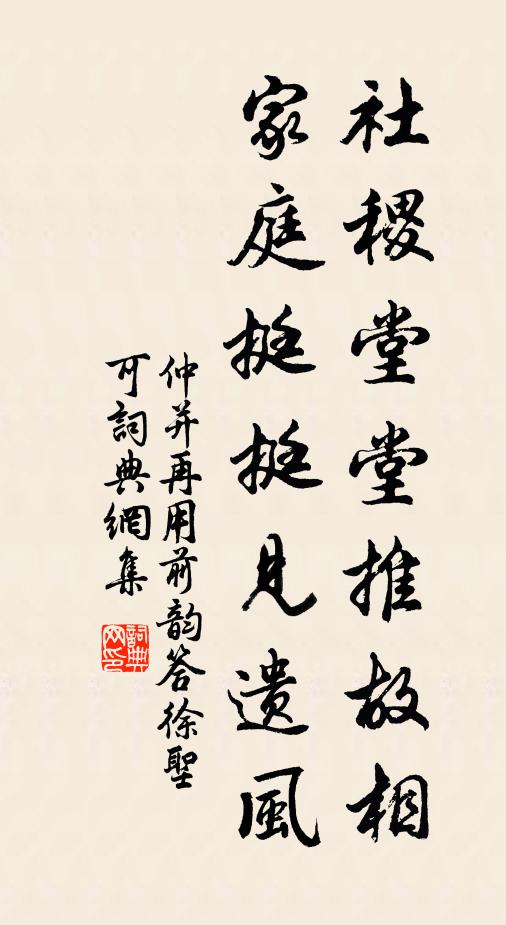 社稷堂堂推故相
家庭挺挺見遺風
仲并再用前韵答徐聖
可詞典網集
詞典
网印